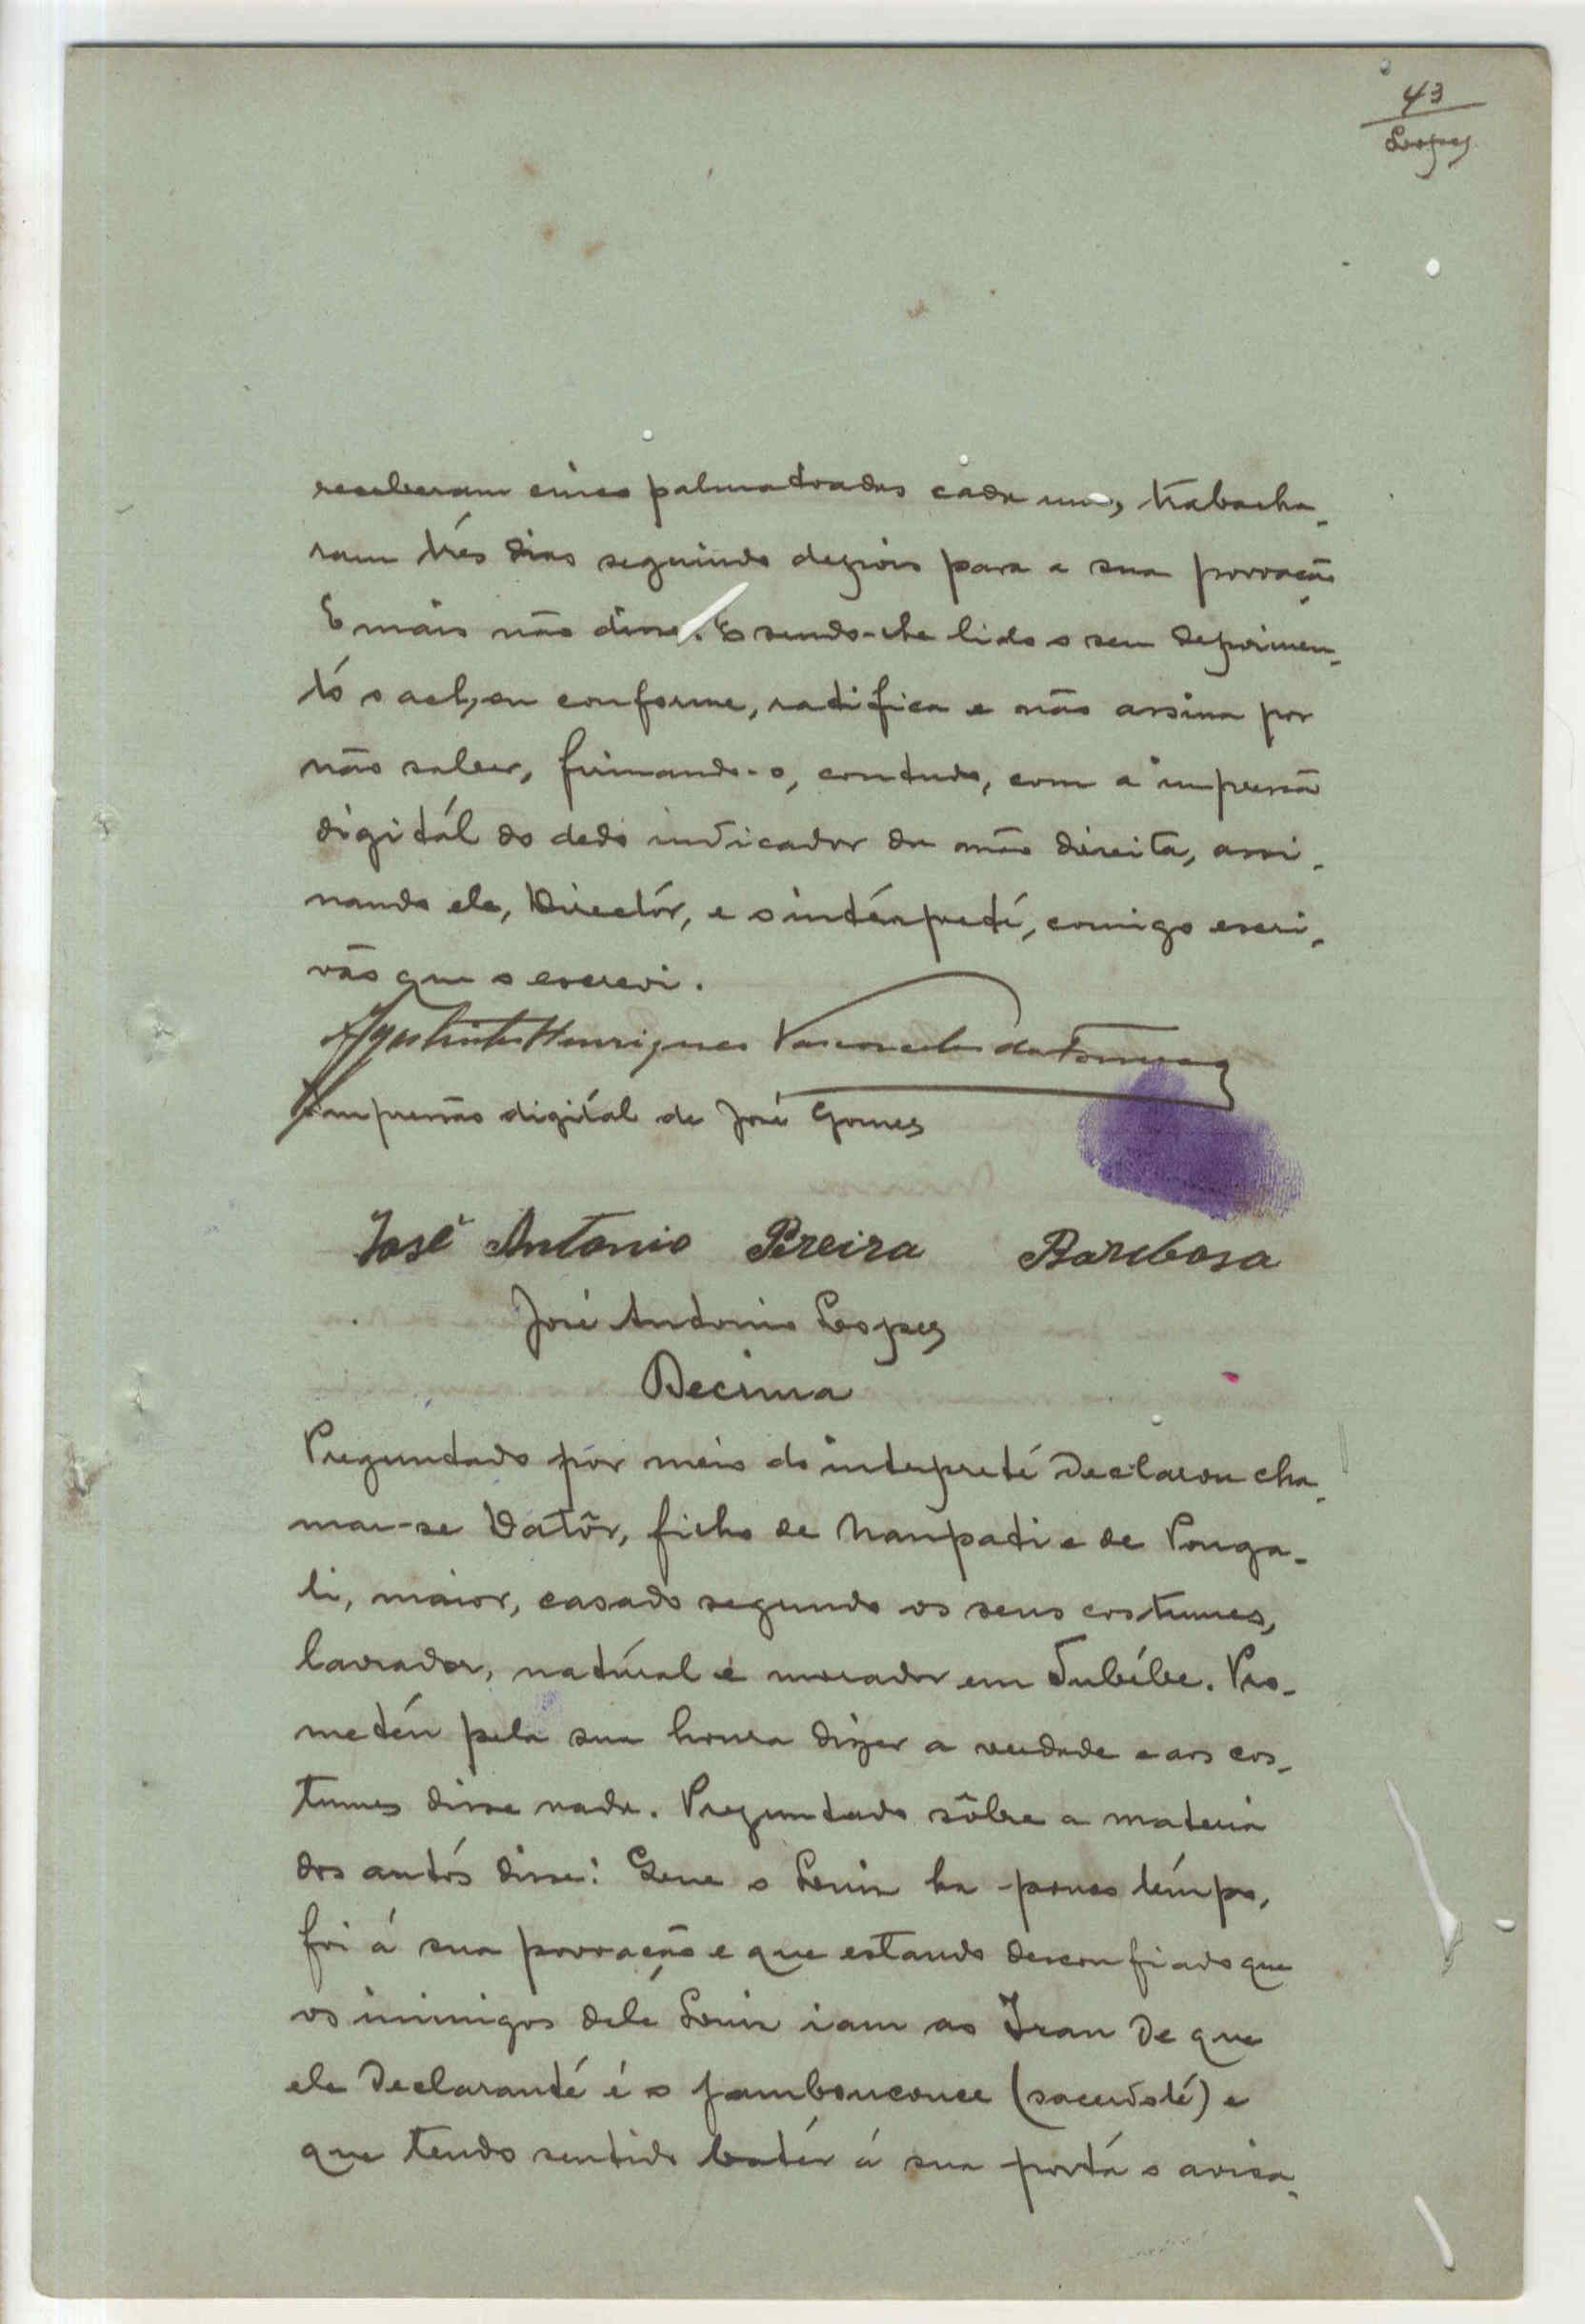 43
Lopes
receberam cinco palmatoadas cada um, trabalha-
ram três dias seguindo depois para a sua povoação
E mais não disse. E sendo-lhe lido o seu depoimen-
tó o achou conforme, ratifica e não assina por
não saber, firmando-o, contudo, com a impressão
digitál do dedo indicador da mão direita, assi-
nando ele, Directór, e o intérpreté, comigo escri-
vão que o escrevi.
Agostinho Henriques Vasconcelos da Fonseca
Impressão digital de José Gomes
José Antonio Pereira Barbosa
José Antonio Lopes
Decima
Preguntado por meio do interpreté declarou cha-
mar-se Datôr, filho de Nanpadi e de Pouga-
li, maior, casado segundo os seus costumes,
lavrador, natural e morador em Jubíbe. Pro-
metéu pela sua honra dizer a verdade e aos cos-
tumes disse nada. Preguntado sôbre a materia
dos autós disse: Que o ha pouco témpo,
foi á sua povoação e que estando desconfiado que
os inimigos delé iam ao Iran de que
ele declaranté é o jamboucouce (sacerdoté) e
que tendo sentido batér á sua portá o avisa-